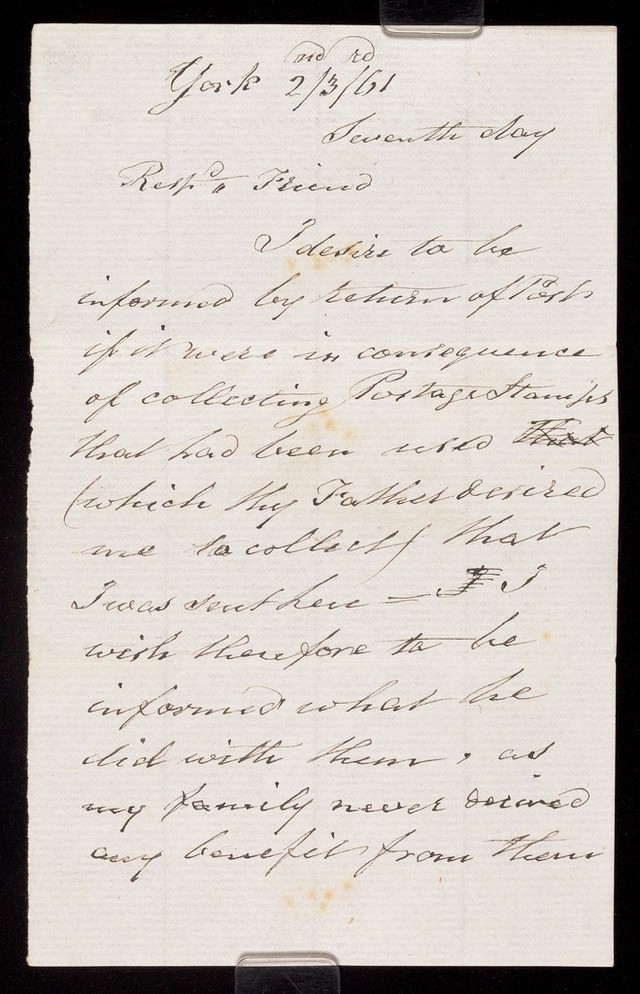 York 2nd/3rd/61
Seventh day
Respd Friend
I desire to be
informed by return of Post
if it were in consequence
of collecting Postage Stamps
that had been used
(which thy Father desired
me to collect) that
I was sent here — I
wish therefore to be
informed what he
did with them, as
my family never derived
any benefit from them